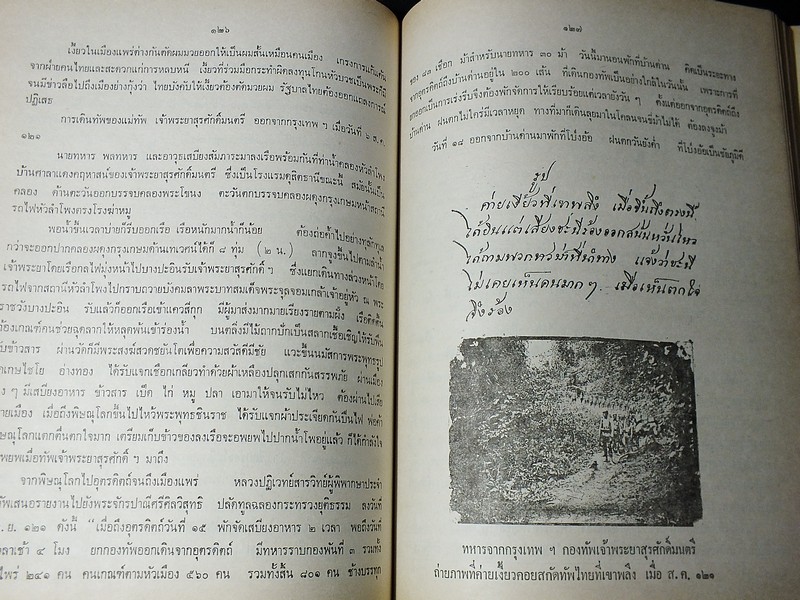 ๑๒๖
เงี้ยวในเมืองแพร่ต่างกันตัดผมมวยออกให้เป็นผมสั้นเหมือนคนเมือง เกรงการแก้แค้น
จากฝ่ายคนไทยและสะดวกแก่การหลบหนี เงี้ยวที่ร่วมมือกระทำผิดลงทุนโกนหัวบวชเป็นพระก็มี
จนมีข่าวลือไปถึงเมืองย่างกุ้งว่า ไทยบังคับให้เงี้ยวต้องตัดมวยผม รัฐบาลไทยต้องออกแถลงการณ์
ปฏิเสธ
การเดินทัพของแม่ทัพ เจ้าพระยาสุรศักดิ์มนตรี ออกจากกรุงเทพ ฯ เมื่อวันที่ ๖ ส.ค.
๑๒๑
นายทหาร พลทหาร และอาวุธเสบียงสัมภาระมาลงเรือพร้อมกันที่ท่าน้ำคลองหัวลำโพง
บ้านศาลาแดงคฤหาสน์ของเจ้าพระยาสุรศักดิ์มนตรี ซึ่งเป็นโรงแรมดุสิตธานีขณะนี้ สมัยนั้นเป็น
คลอง ด้านตะวันออกบรรจบคลองพระโขนง ตะวันตกบรรจบคลองผดุงกรุงเกษมหน้าสถานี
รถไฟหัวลำโพงตรงโรงฆ่าหมู
พอน้ำขึ้นเวลาบ่ายก็รีบออกเรือ เรือหนักมากน้ำก็น้อย ต้องถ่อค้ำไปอย่างทุลักทุเล
กว่าจะออกปากคลองผดุงกรุงเกษมด้านเทเวศน์ได้ก็ ๘ ทุ่ม (๒ น.) ลากจูงขึ้นไปตามลำน้ำ
เจ้าพระยาโดยเรือกลไฟมุ่งหน้าไปบางปะอินรับเจ้าพระยาสุรศักดิ์ ฯ ซึ่งแยกเดินทางล่วงหน้าโดย
รถไฟจากสถานีหัวลำโพงไปกราบถวายบังคมลาพระบาทสมเด็จพระจุลจอมเกล้าเจ้าอยู่หัว ณ พระ
ราชวังบางปะอิน รับแล้วก็ออกเรือเข้าแควสีกุก มีผู้มาส่งมากมายเรียงรายตามฝั่ง เรือติดตื้น
ต้องเกณฑ์คนช่วยฉุดลากให้หลุดพ้นเข้าร่องน้ำ บนตลิ่งมีไม้ถากปักเป็นสลากเชื้อเชิญให้รับพัน
ข้าวสาร ผ่านวัดก็มีพระสงฆ์สวดชยันโตเพื่อความสวัสดีมีชัย แวะขึ้นนมัสการพระพุทธรูป
เกษไชโย อ่างทอง ได้รับแจกเชือกเกลียวทำด้วยผ้าเหลืองปลุกเสกกันสรรพภัย ผ่านเมือง
ๆ มีเสบียงอาหาร ข้าวสาร เป็ด ไก่ หมู ปลา เอามาให้จนรับไม่ไหว ต้องผ่านไปเสีย
เมือง เมื่อถึงพิษณุโลกขึ้นไปไหว้พระพุทธชินราช ได้รับแจกผ้าประเจียดกันปืนไฟ พ่อค้า
พิษณุโลกแตกตื่นตกใจมาก เตรียมเก็บข้าวของลงเรือจะอพยพไปปากน้ำโพอยู่แล้ว ก็ได้กำลังใจ
อพยพเมื่อทัพเจ้าพระยาสุรศักดิ์ ฯ มาถึง
จากพิษณุโลกไปอุตรดิตถ์จนถึงเมืองแพร่ หลวงปฏิเวทย์สารวิทย์ผู้พิพากษาประจำ
ทัพเสนอรายงานไปยังพระจักรปาณีศรีศิลวิสุทธิ ปลัดทูลฉลองกระทรวงยุติธรรม ลงวันที่
ย. ๑๒๑ ดังนี้ “เมื่อถึงอุตรดิตถ์วันที่ ๑๕ พักจัดเสบียงอาหาร ๒ เวลา พอถึงวันที่
เวลาเช้า ๔ โมง ยกกองทัพออกเดินจากอุตรดิตถ์ มีทหารราบกองพันที่ ๓ รวมทั้ง
แพร่ ๒๔๑ คน คนเกณฑ์ตามหัวเมือง ๕๖๐ คน รวมทั้งสิ้น ๘๐๑ คน ช้างบรรทุก
๑๒๗
ของ ๘๓ เชือก ม้าสำหรับนายทหาร ๓๐ ม้า วันนี้มานอนพักที่บ้านด่าน คิดเป็นระยะทาง
จากอุตรดิตถ์ถึงบ้านด่านอยู่ใน ๒๐๐ เส้น ที่เดินกองทัพเป็นอย่างใกล้ในวันนั้น เพราะการที่
ออกเป็นการเร่งรีบจึงต้องพักจัดการให้เรียบร้อยแต่เวลายังวัน ๆ ตั้งแต่ออกจากอุตรดิตถ์ถึง
บ้านด่าน ฝนตกไม่ใคร่มีเวลาหยุด ทางที่มาก็เดินลุยมาในโคลนจนขี่ม้าไม่ได้ ต้องลงจูงม้า
วันที่ ๑๙ ออกจากบ้านด่านมาพักที่โป่งอ้อ ฝนตกวันยังค่ำ ที่โป่งอ้อเป็นชัยภูมิดี
รูป
ค่ายเงี้ยวที่เขาพลึง เมื่อขึ้นถึงตรงนี้
ได้ยินแต่เสียงชะนีร้องออกสนั่นหวั่นไหว
ได้ถามพวกทหารที่นำทาง แจ้งว่าชะนี
ไม่เคยเห็นคนมาก ๆ เมื่อเห็นตกใจ
จึงร้อง
ทหารจากกรุงเทพ ฯ กองทัพเจ้าพระยาสุรศักดิ์มนตรี
ถ่ายภาพที่ค่ายเงี้ยวคอยสกัดทัพไทยที่เขาพลึง เมื่อ ส.ค. ๑๒๑